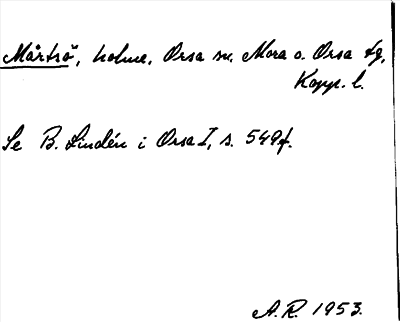 Mårtsö, holme, Orsa sn. Mora o. Orsa tg,
Kopp. l.
Se B. Lindén i Orsa I, s. 549f.
A.R. 1953.